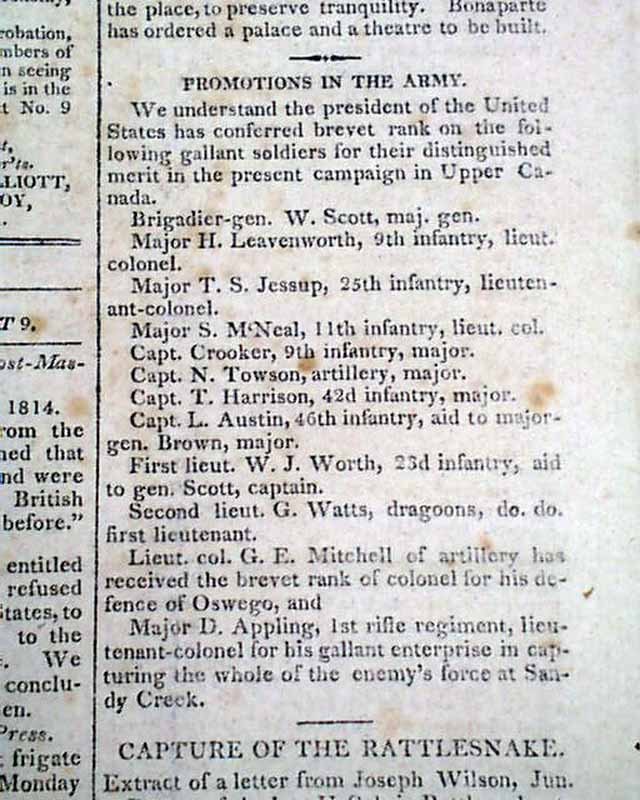 robation,
mbers of
n seeing
is in the
t No. 9
r'ts.
LLIOTT,
OY,
T 9.
ost-Mas-
1814.
rom the
ned that
nd were
British
before."
entitled
refused
States, to
to the
We
conclu-
en.
Press.
frigate
Monday
the place, to preserve tranquility. Bonaparte
has ordered a palace and a theatre to be built.
PROMOTIONS IN THE ARMY.
We understand the president of the United
States has conferred brevet rank on the fol-
lowing gallant soldiers for their distinguished
merit in the present campaign in Upper Ca-
nada.
Brigadier-gen. W. Scott, maj. gen.
Major H. Leavenworth, 9th infantry, lieut.
colonel.
Major T. S. Jessup, 25th infantry, lieuten-
ant-colonel.
Major S. M'Neal, 11th infantry, lieut. col.
Capt. Crooker, 9th infantry, major.
Capt. N. Towson, artillery, major.
Capt. T. Harrison, 42d infantry, major.
Capt. L. Austin, 46th infantry, aid to major-
gen. Brown, major.
First lieut. W. J. Worth, 23d infantry, aid
to gen. Scott, captain.
Second lieut. G. Watts, dragoons, do. do.
first lieutenant.
Lieut. col. G. E. Mitchell of artillery has
received the brevet rank of colonel for his de-
fence of Oswego, and
Major D. Appling, 1st rifle regiment, lieu-
tenant-colonel for his gallant enterprise in cap-
turing the whole of the enemy's force at San-
dy Creek.
CAPTURE OF THE RATTLESNAKE.
Extract of a letter from Joseph Wilson, Jun.